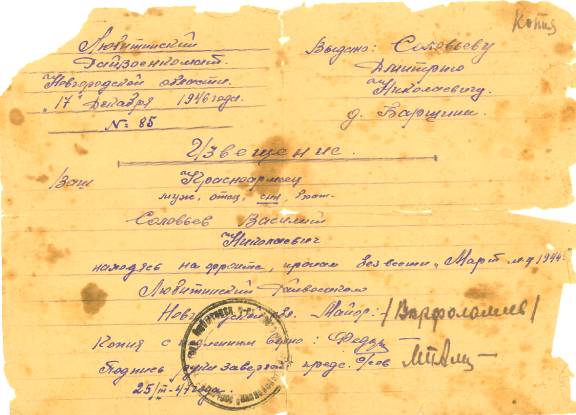 Копия
Любытинский
Райвоенкомат
Новгородской области.
"17" Декабря 1946 года.
№ 85
Выдано: Соловьеву
Дмитрию
Николаевичу.
д. Барщики
Извещение.
Ваш Красноармеец
муж, отец, сын, брат.
Соловьев Василий
Николаевич
находясь на фронте, пропал без вести "Март м-ц 1944г.
Любытинский Райвоенком
Майор: /Варфоломеев/
Копия с подлинным верно:
Подпись руки заверяю пред. с/сов
25/III-47 года.